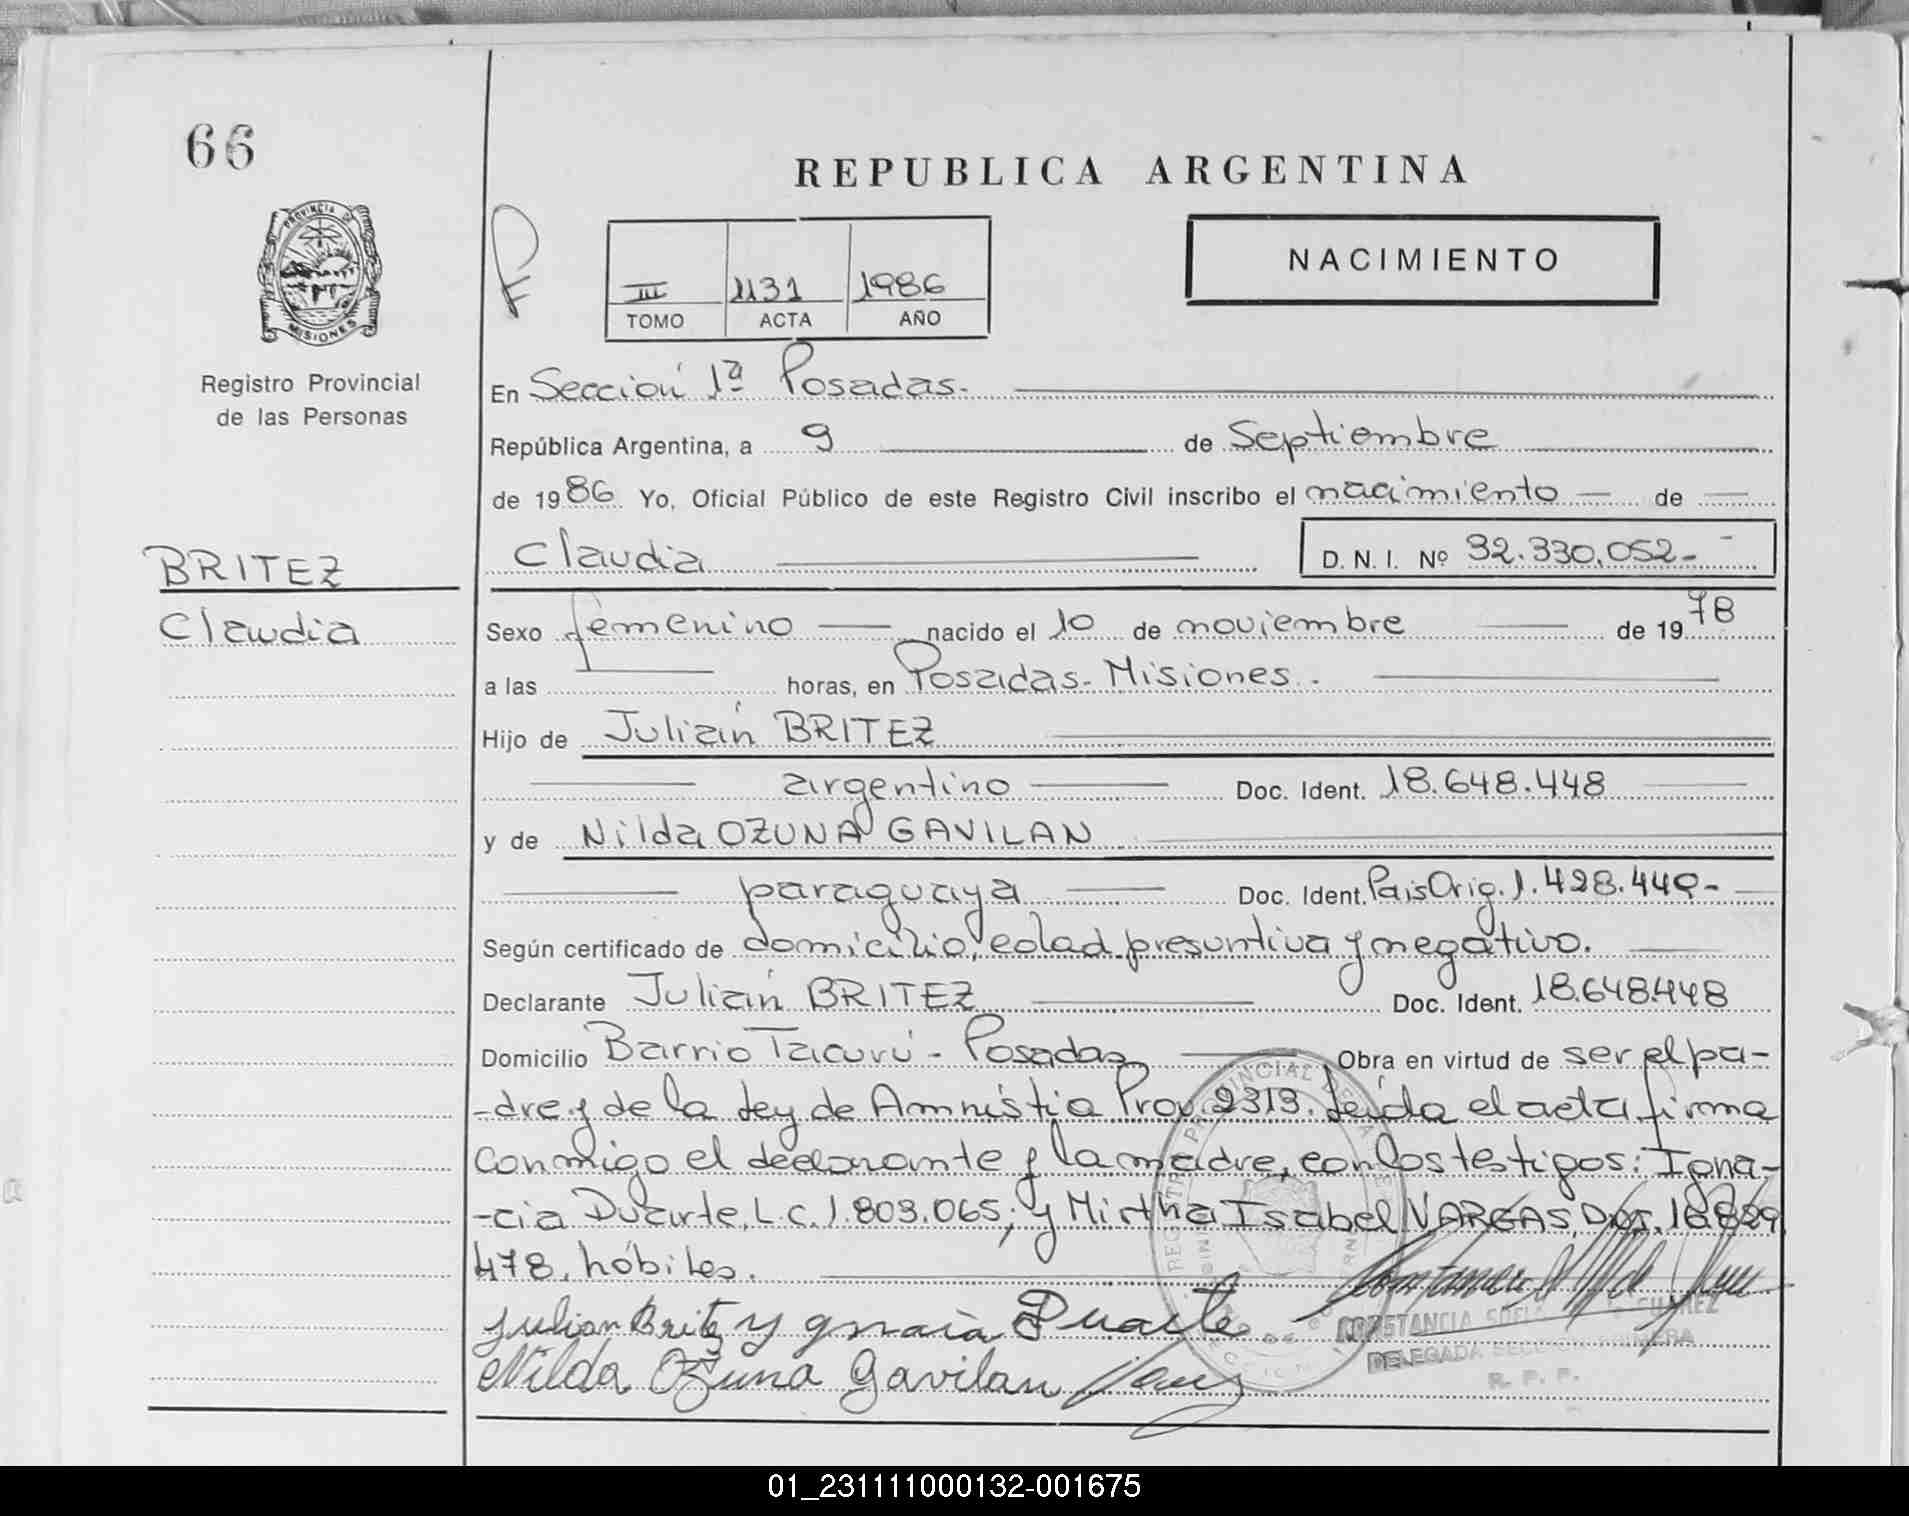 66
REPUBLICA ARGENTINA
PROVINCIA DE
MISIONES
Registro Provincial
de las Personas
III 1131 1986
TOMO ACTA AÑO
NACIMIENTO
En Sección 1ª Posadas.
República Argentina, a 9 de Septiembre
de 1986 Yo, Oficial Público de este Registro Civil inscribo el nacimiento de
BRITEZ
Claudia
Claudia D. N. I. Nº 32.330.052-
Sexo femenino nacido el 10 de noviembre de 1978
a las horas, en Posadas- Misiones.
Hijo de Julián BRITEZ
argentino Doc. Ident. 18.648.448
y de Nilda OZUNA GAVILAN
paraguaya Doc. Ident. Pais Orig. 1.428.440-
Según certificado de domicilio, edad presuntiva y negativo.
Declarante Julián BRITEZ Doc. Ident. 18.648448
Domicilio Barrio Tacurú - Posadas Obra en virtud de ser el pa-
-dre y de la Ley de Amnistia Prov. 2313. Leída el acta firma
conmigo el declarante y la madre, con los testigos: Igna-
-cia Duarte, L.C. 1.803.065; y Mirtha Isabel VARGAS,
478, hábiles.
Julian Britez Ygnacia Duarte
Nilda Ozuna Gavilan
CONSTANCIA SUAREZ
DELEGADA SECCION PRIMERA
R. P. P.
01_231111000132-001675